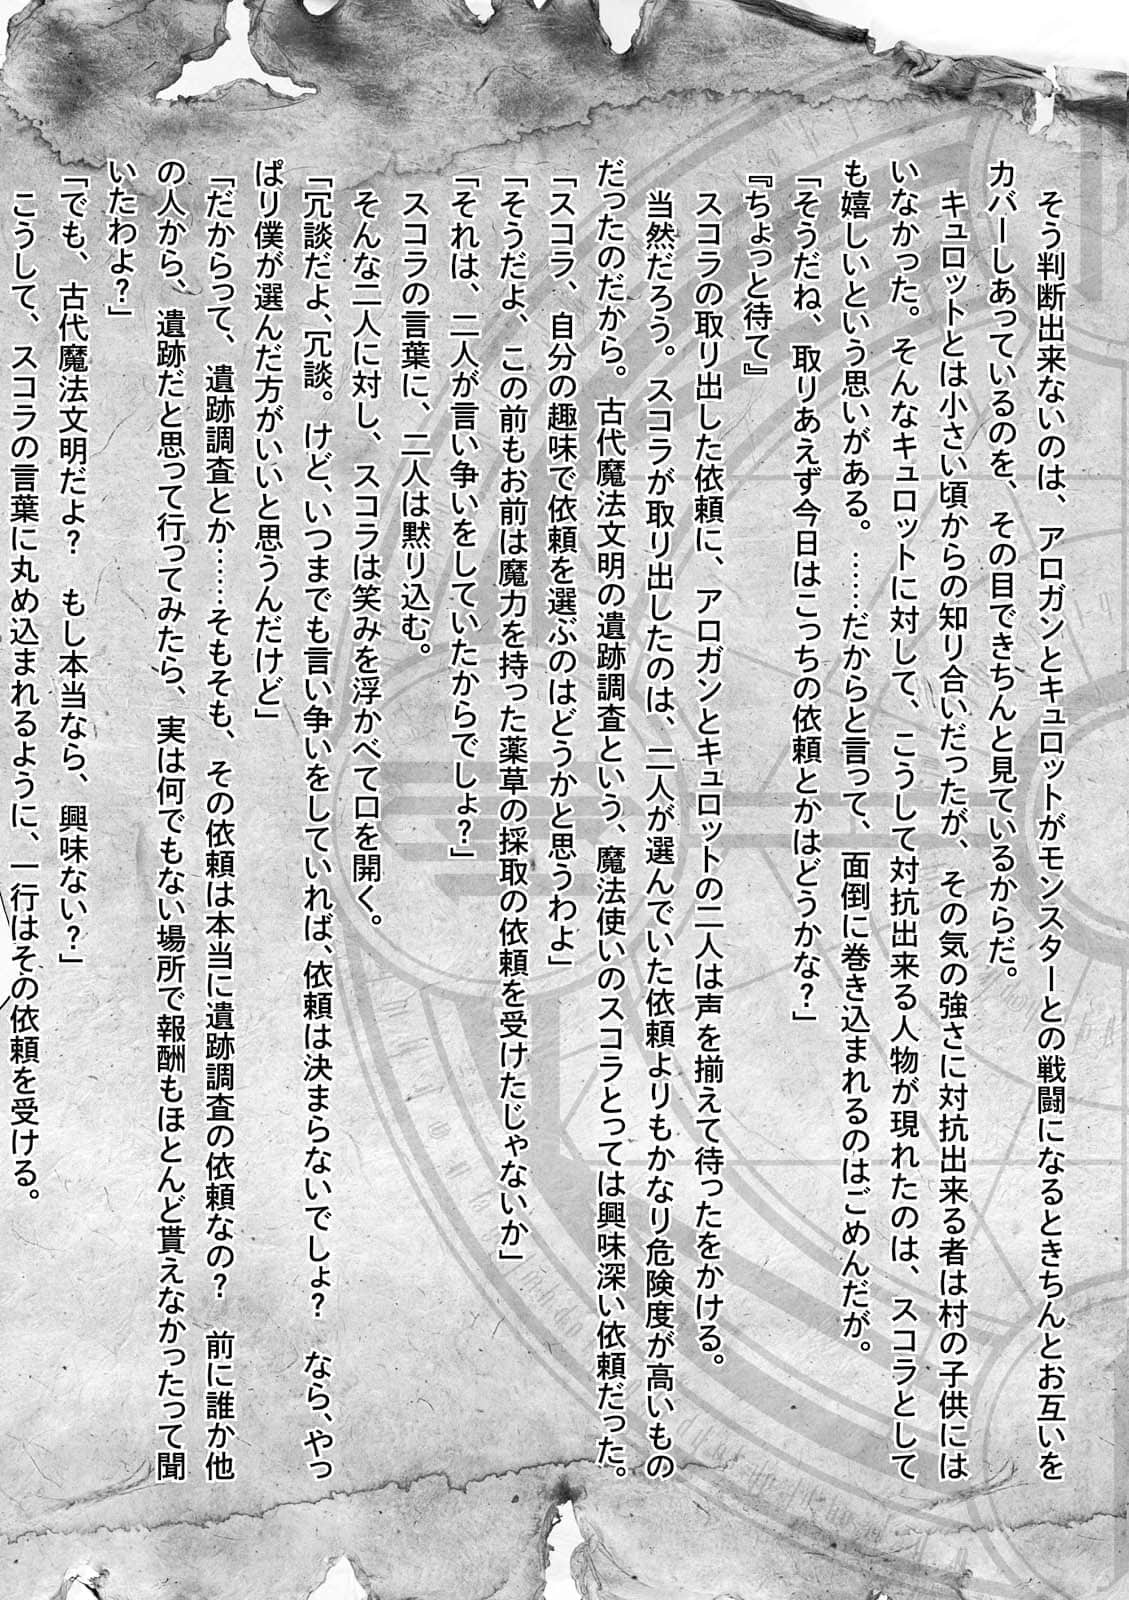 そう判断出来ないのは、アロガンとキュロットがモンスターとの戦闘になるときちんとお互いを
カバーしあっているのを、その目できちんと見ているからだ。
キュロットとは小さい頃からの知り合いだったが、その気の強さに対抗出来る者は村の子供には
いなかった。そんなキュロットに対して、こうして対抗出来る人物が現れたのは、スコラとして
も嬉しいという思いがある。……だからと言って、面倒に巻き込まれるのはごめんだが。
「そうだね、取りあえず今日はこっちの依頼とかはどうかな？」
『ちょっと待て』
スコラの取り出した依頼に、アロガンとキュロットの二人は声を揃えて待ったをかける。
当然だろう。スコラが取り出したのは、二人が選んでいた依頼よりもかなり危険度が高いもの
だったのだから。古代魔法文明の遺跡調査という、魔法使いのスコラとっては興味深い依頼だった。
「スコラ、自分の趣味で依頼を選ぶのはどうかと思うわよ」
「そうだよ、この前もお前は魔力を持った薬草の採取の依頼を受けたじゃないか」
「それは、二人が言い争いをしていたからでしょ？」
スコラの言葉に、二人は黙り込む。
そんな二人に対し、スコラは笑みを浮かべて口を開く。
「冗談だよ、冗談。けど、いつまでも言い争いをしていれば、依頼は決まらないでしょ？　なら、やっ
ぱり僕が選んだ方がいいと思うんだけど」
「だからって、遺跡調査とか……そもそも、その依頼は本当に遺跡調査の依頼なの？　前に誰か他
の人から、遺跡だと思って行ってみたら、実は何でもない場所で報酬もほとんど貰えなかったって聞
いたわよ？」
「でも、古代魔法文明だよ？　もし本当なら、興味ない？」
こうして、スコラの言葉に丸め込まれるように、一行はその依頼を受ける。